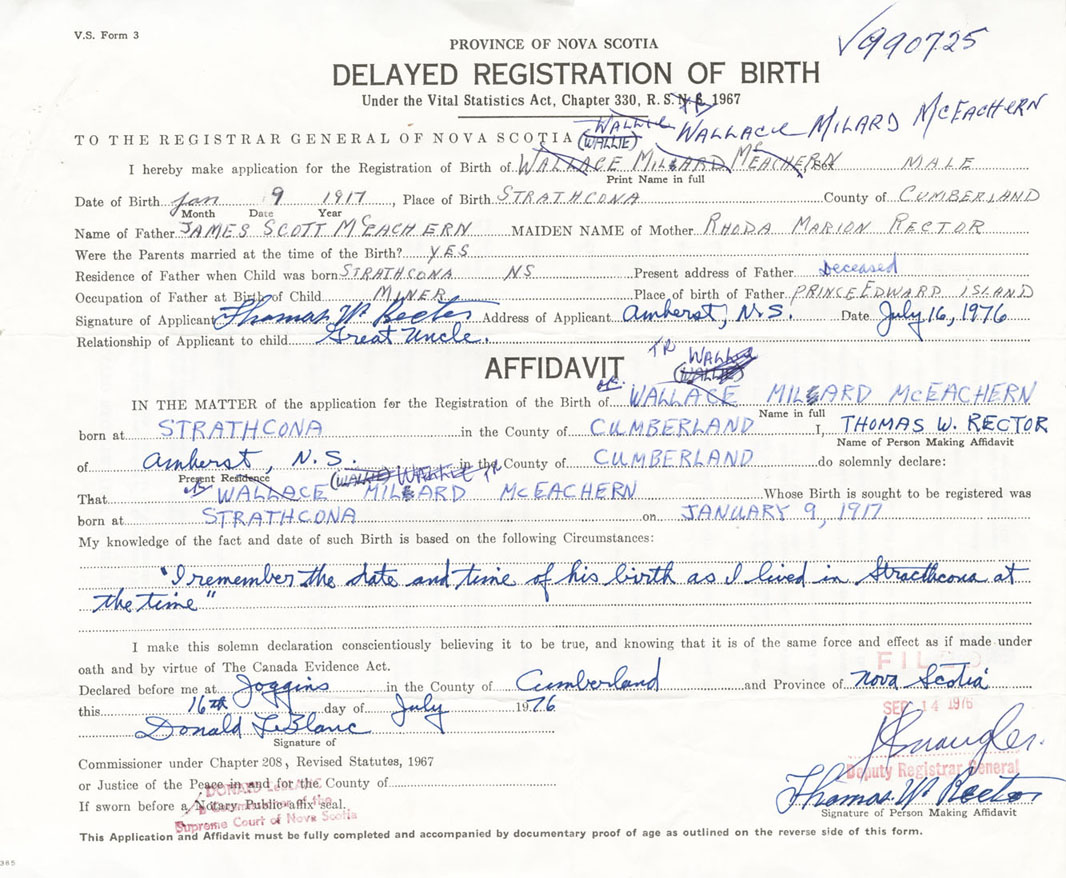 V.S. Form 3
√990725
PROVINCE OF NOVA SCOTIA
DELAYED REGISTRATION OF BIRTH
Under the Vital Statistics Act, Chapter 330, R. S. N. S. 1967
WALLACE MILARD McEACHERN
TO THE REGISTRAR GENERAL OF NOVA SCOTIA (WALLIE)
I hereby make application for the Registration of Birth of WALLACE MILLARD McEACHERN, Sex MALE
Print Name in full
Date of Birth Jan 9 1917, Place of Birth STRATHCONA County of CUMBERLAND
Month Date Year
Name of Father JAMES SCOTT McEACHERN MAIDEN NAME of Mother RHODA MARION RECTOR
Were the Parents married at the time of the Birth? YES
Residence of Father when Child was born STRATHCONA NS Present address of Father Deceased
Occupation of Father at Birth of Child MINER Place of birth of Father PRINCE EDWARD ISLAND
Signature of Applicant Thomas W. Rector Address of Applicant Amherst, N.S. Date July 16, 1976
Relationship of Applicant to child Great Uncle.
TR WALLACE
AFFIDAVIT (WALLIE)
IN THE MATTER of the application for the Registration of the Birth of WALLACE MILLARD McEACHERN
Name in full
born at STRATHCONA in the County of CUMBERLAND I, THOMAS W. RECTOR
Name of Person Making Affidavit
of Amherst, N.S. in the County of CUMBERLAND do solemnly declare:
Present Residence (WALLIE) TR
That WALLACE MILLARD McEACHERN Whose Birth is sought to be registered was
born at STRATHCONA on JANUARY 9, 1917
My knowledge of the fact and date of such Birth is based on the following Circumstances:
"I remember the date and time of his birth as I lived in Stracthcona at
the time"
I make this solemn declaration conscientiously believing it to be true, and knowing that it is of the same force and effect as if made under
oath and by virtue of The Canada Evidence Act.
FILED
Declared before me at Joggins in the County of Cumberland and Province of Nova Scotia
this 16th day of July 1976
SEP 14 1976
Donald LeBlanc
Signature of
Commissioner under Chapter 208, Revised Statutes, 1967
Deputy Registrar General
or Justice of the Peace in and for the County of
DONALD LeBLANC
If sworn before a Notary Public affix seal.
Thomas W. Rector
Supreme Court of Nova Scotia
Signature of Person Making Affidavit
This Application and Affidavit must be fully completed and accompanied by documentary proof of age as outlined on the reverse side of this form.
385